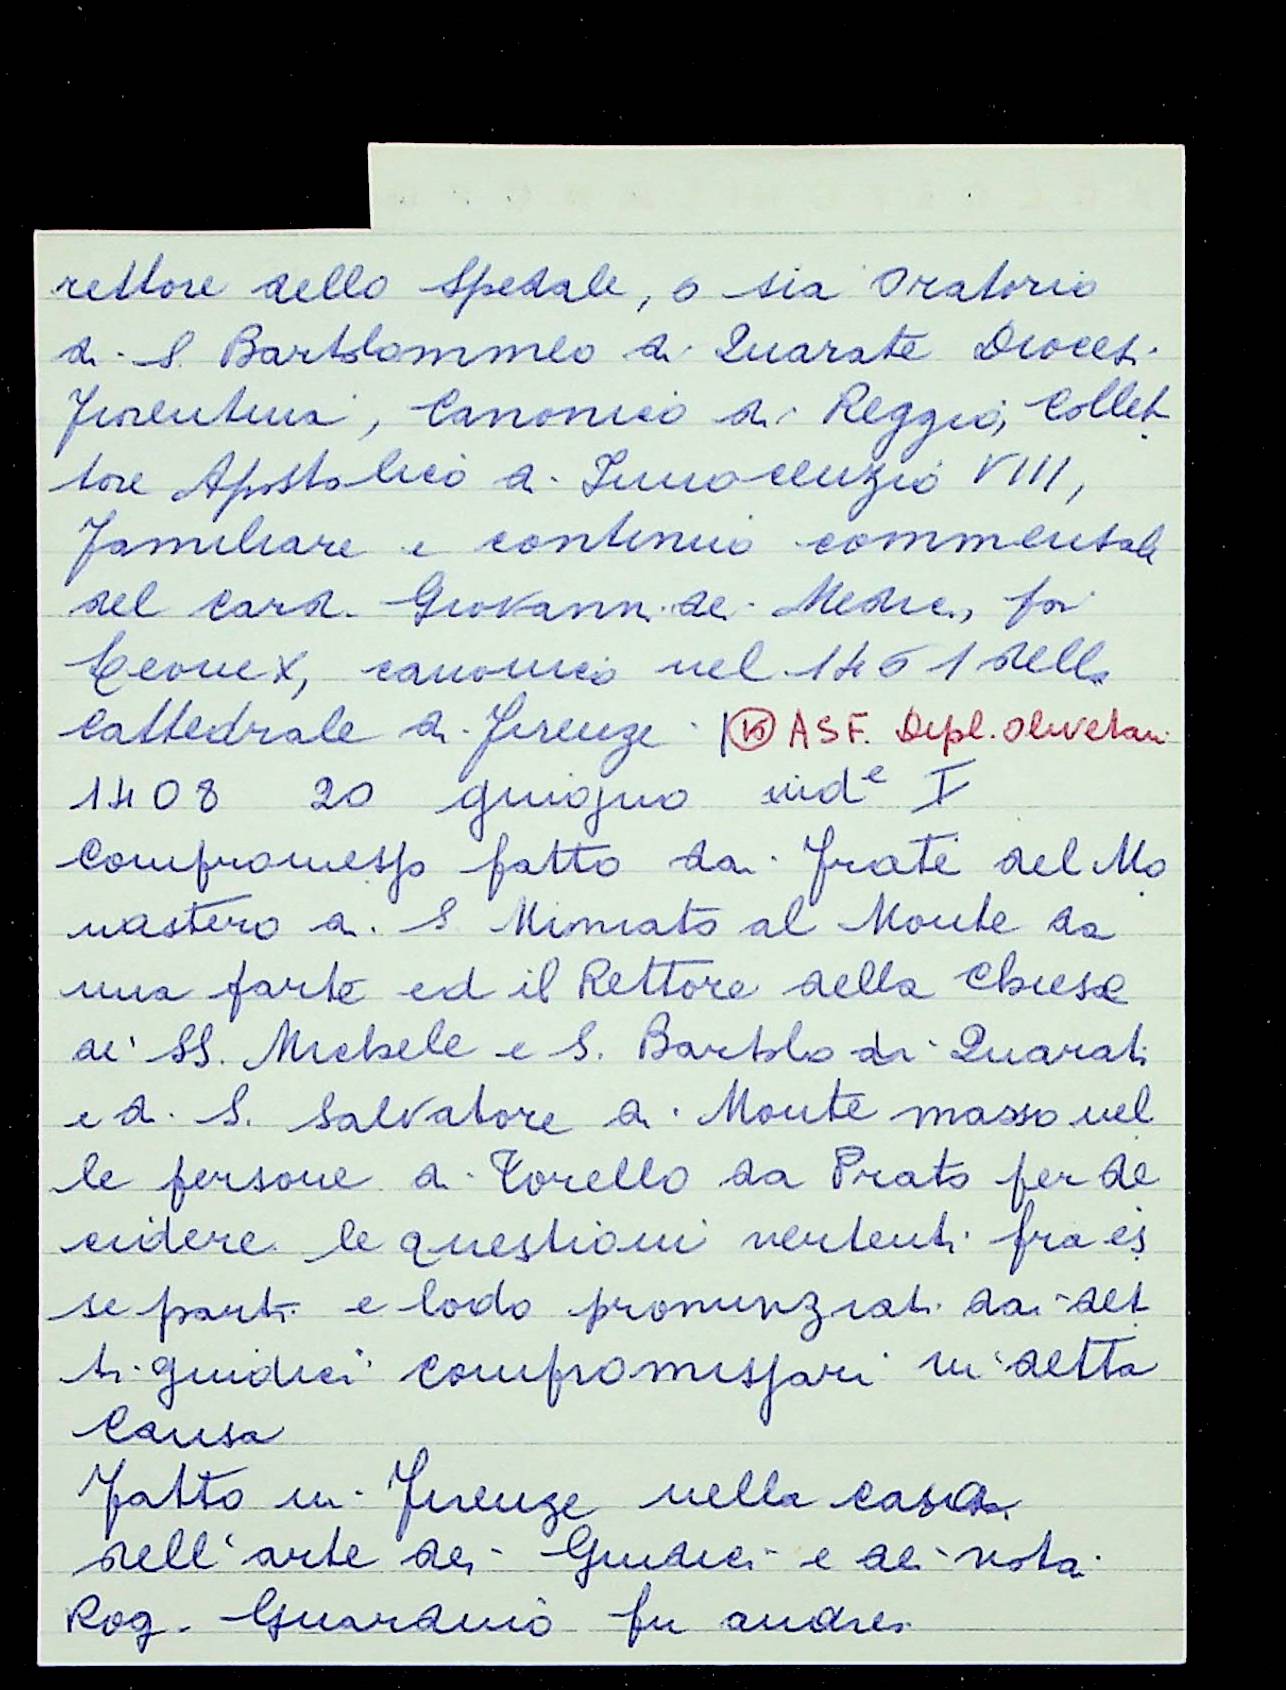 rettore dello Spedale, o sia Oratorio
di S. Bartolommeo di Quarate Diocesi
Fiorentina, Canonico di Reggio, Collet
tore Apostolico di Innocenzio VIII,
Familiare e continuo commensale
del Card. Giovanni de' Medici, poi
Leone X, canonico nel 1461 della
Cattedrale di Firenze. | ASF. Dipl. Olivetani
1408 20 giugno ind^e I
Compromesso fatto dai frati del Mo
nastero di S. Miniato al Monte da
una parte ed il Rettore della Chiesa
di SS. Michele e S. Bartolo di Quarati
e di S. Salvatore di Monte masso nel
le persone di Torello da Prato per de
cidere le questioni vertenti fra es
se parti e lodo pronunziati dai det
ti giudici compromissari in detta
Causa
Fatto in Firenze nella casa
dell'arte dei Giudici e dei nota
Rog. Guarduio fu andrei